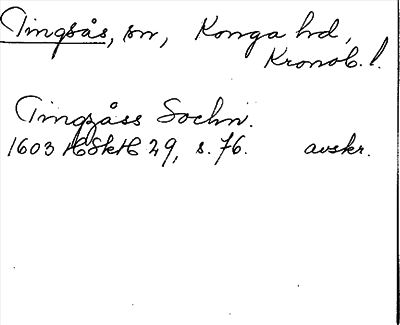 Tingsås, sn, Konga hd,
Kronob. l.
Tingzåss Sochn.
1603 HSkH 29, s. 76. avskr.